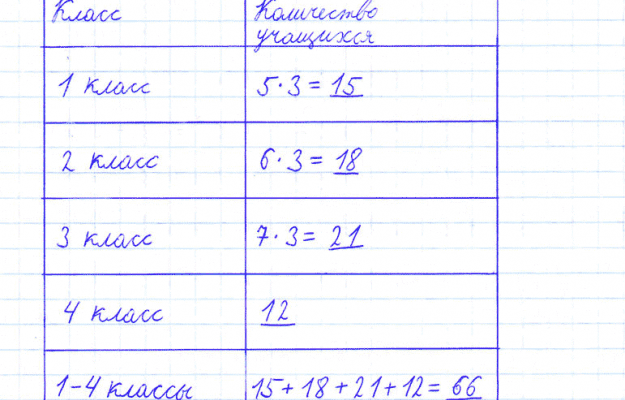 Класс Количество
учащихся
1 класс 5·3 = 15
2 класс 6·3 = 18
3 класс 7·3 = 21
4 класс 12
1-4 классы 15+18+21+12= 66